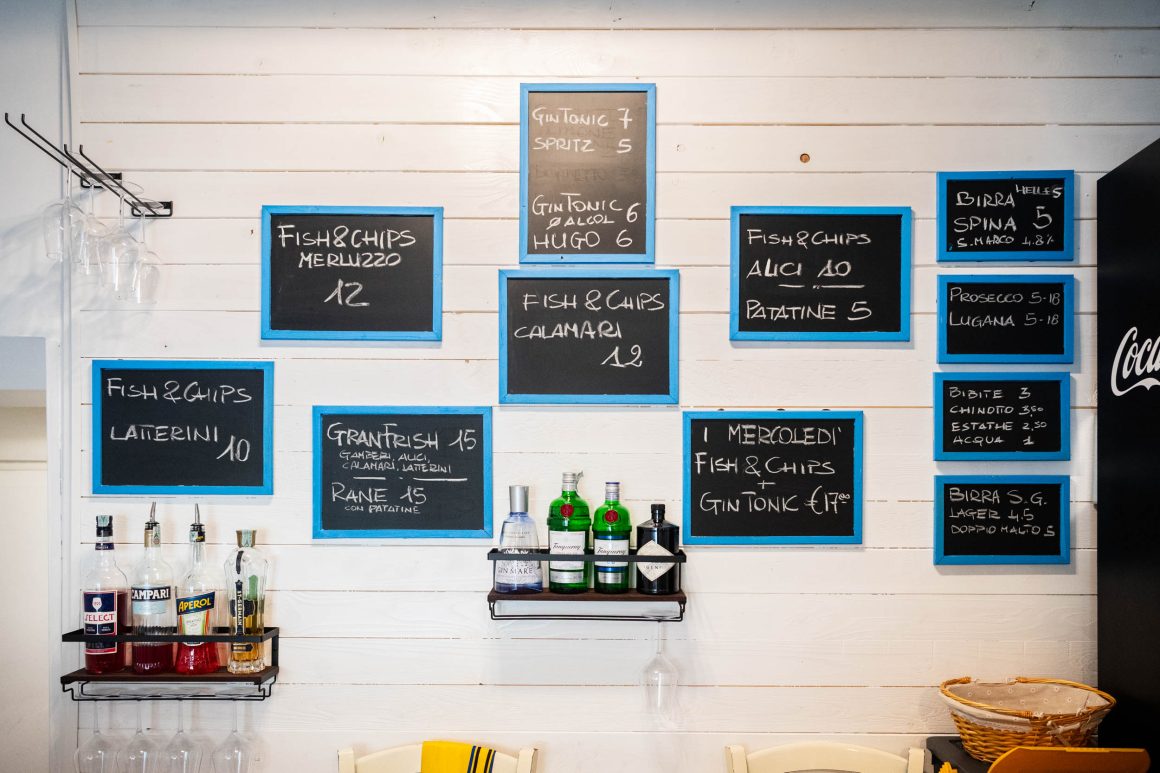 GIN TONIC 7
SPRITZ 5
GIN TONIC
Ø ALCOL 6
HUGO 6
FISH & CHIPS
MERLUZZO
12
FISH & CHIPS
CALAMARI
12
FISH & CHIPS
ALICI 10
PATATINE 5
BIRRA HELLES
SPINA 5
S. MARCO 4.8%
PROSECCO 5-18
LUGANA 5-18
FISH & CHIPS
LATTERINI 10
GRANFRISH 15
GAMBERI, ALICI,
CALAMARI, LATTERINI
RANE 15
CON PATATINE
I MERCOLEDI'
FISH & CHIPS
+
GIN TONIC €17,00
BIBITE 3
CHINOTTO 3,50
ESTATHE 2,50
ACQUA 1
BIRRA S.G.
LAGER 4.5
DOPPIO MALTO 5
SELECT
CAMPARI
APEROL
ST-GERMAIN
GIN MARE
Tanqueray
Tanqueray
Coca